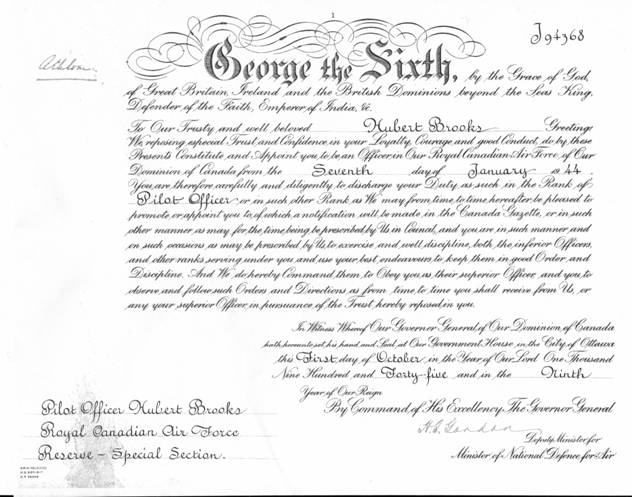 1
J94368
Athlone.
George the Sixth, by the Grace of God,
of Great Britain, Ireland and the British Dominions beyond the Seas King,
Defender of the Faith, Emperor of India, &c.
To Our Trusty and well beloved Hubert Brooks Greeting:
We reposing especial Trust and Confidence in your Loyalty, Courage and good Conduct, do by these
Presents Constitute and Appoint you to be an Officer in Our Royal Canadian Air Force, of Our
Dominion of Canada from the Seventh day of January 1944.
You are therefore carefully and diligently to discharge your Duty as such in the Rank of
Pilot Officer or in such other Rank as We may from time to time hereafter be pleased to
promote or appoint you to, of which a notification will be made in the Canada Gazette, or in such
other manner as may for the time being be prescribed by Us in Council, and you are in such manner and
on such occasions as may be prescribed by Us to exercise and well discipline both the inferior Officers
and other ranks serving under you and use your best endeavours to keep them in good Order and
Discipline. And We do hereby Command them to Obey you as their superior Officer, and you to
observe and follow such Orders and Directions as from time to time you shall receive from Us, or
any your superior Officer, in pursuance of the Trust hereby reposed in you.
In Witness Whereof Our Governor General of Our Dominion of Canada
hath hereunto set his hand and Seal at Our Government House in the City of Ottawa
this First day of October in the Year of Our Lord One Thousand
Nine Hundred and Forty-five and in the Ninth
Year of Our Reign
By Command of His Excellency The Governor General
Deputy Minister for
Minister of National Defence for Air
Pilot Officer Hubert Brooks
Royal Canadian Air Force
Reserve - Special Section.